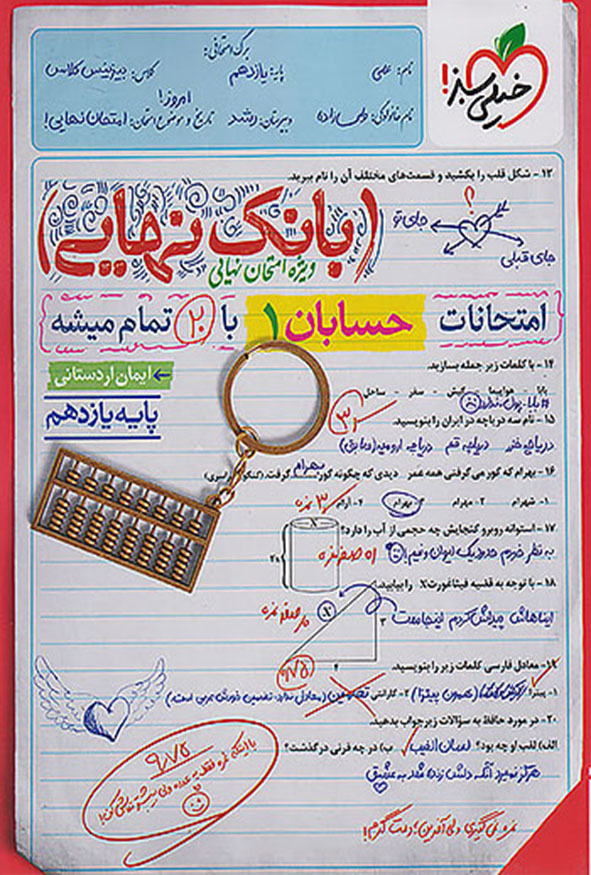 برگ امتحانی:
نام: علی
پایه: یازدهم
کلاس: بیزینس کلاس
نام خانوادگی:
دبیرستان: رشد
تاریخ و موضوع امتحان: امروز! امتحان نهایی!
خیلی سبز!
۱۳- شکل قلب را بکشید و قسمت‌های مختلف آن را نام ببرید.
؟
جای تو
جای قبلی
(بانک نهایی)
ویژه امتحان نهایی
امتحانات حسابان ۱ با ۲۰ تمام میشه
۱۴- با کلمات زیر جمله بسازید.
ایمان اردستانی
بابا - هواپیما - کیش - سفر - ساحل
بابا پول نداره
پایه یازدهم
۱۵- نام سه دریاچه در ایران را بنویسید.
دریاچه خزر دریاچه قم دریاچه ارومیه
۱۶- بهرام که گور می‌گرفتی همه عمر دیدی که چگونه گور بهرام گرفت.
۱- شهرام ۲- مهرام ۳- بهرام ۴- آرام
۳ نمره
۱۷- استوانه روبرو گنجایش چه حجمی از آب را دارد؟
X
به نظر خودم حدود یک لیوان و نیم!
۱۸- با توجه به قضیه فیثاغورث X را بیابید.
ایناهاش پیداش کردم اینجاست
X
۳
۴
۱۹- معادل فارسی کلمات زیر را بنویسید.
۱- پیتزا: ۲- گارانتی تضمین
۲۰- در مورد حافظ به سؤالات زیر جواب بدهید.
الف) لقب او چه بود؟ لسان الغیب ب) در چه قرنی درگذشت؟
هرگز نمیرد آنکه دلش زنده شد به عشق
۹/۷۵
نمره نمی‌گیری ولی آفرین؛ دمت گرم!